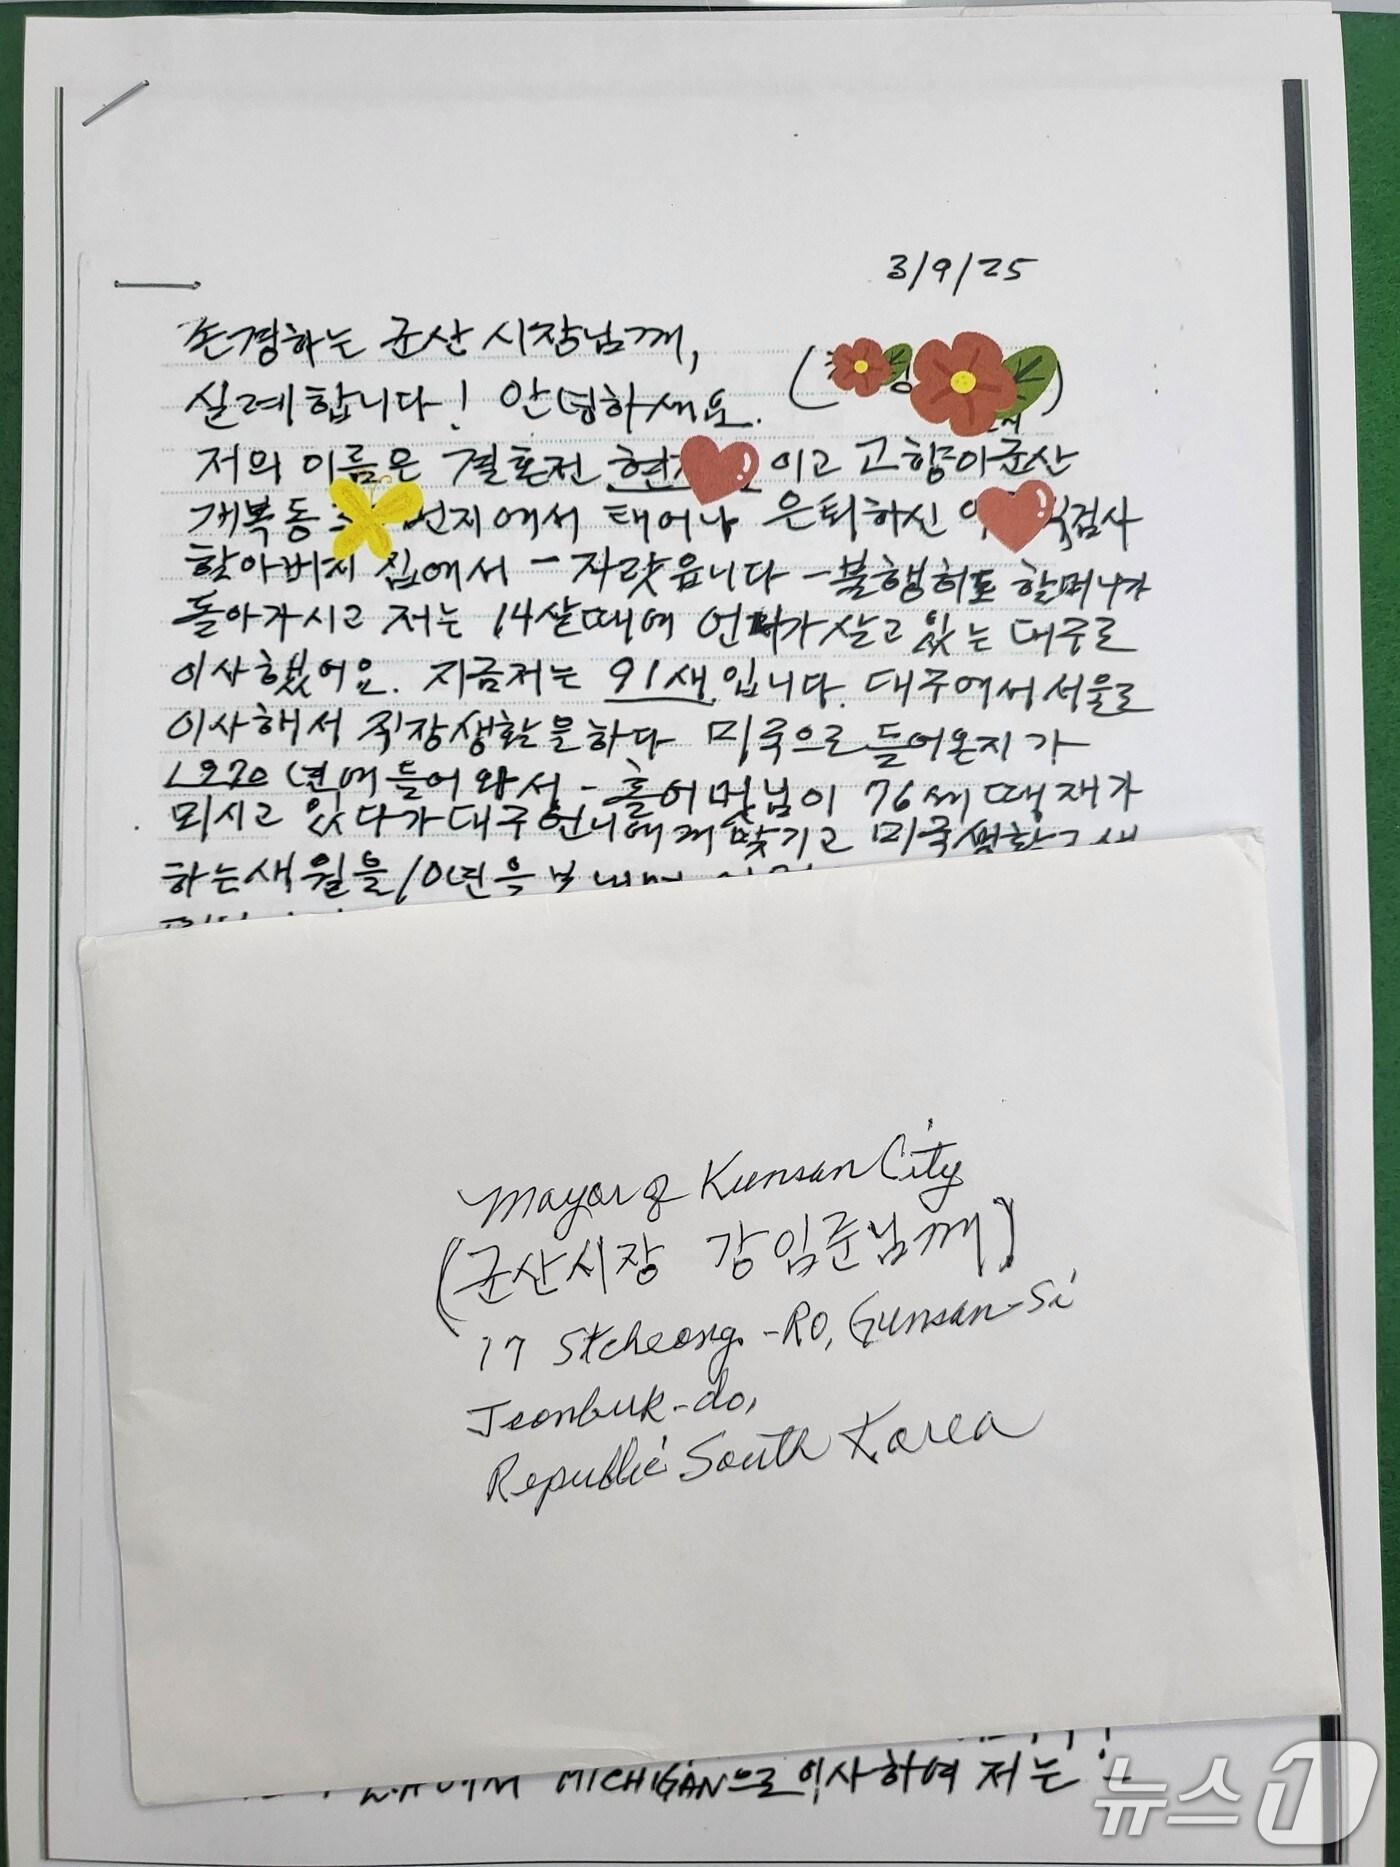 3/9/25
존경하는 군산 시장님께,
실례합니다! 안녕하세요. (
저의 이름은 결혼전 현 이고 고향이군산
개복동 번지에서 태어나 은퇴하신 검사
할아버지 집에서 - 자랐읍니다 - 불행히도 할머니가
돌아가시고 저는 14살때에 언니가 살고 있는 대구로
이사했어요. 지금저는 91세 입니다. 대구에서 서울로
이사해서 직장생활을하다 미국으로 들어온지가
1970년에 들어와서 - 홀어멋님이 76세 때 재가
뫼시고 있다가 대구언니에게 맞기고 미국생활
하는 새월을 10년을
Mayor of Kunsan City
(군산시장 강임준님께)
17 Stcheong-RO, Gunsan-Si
Jeonbuk-do,
Republic South Korea
에서 MICHIGAN으로 이사하여 저는
뉴스1